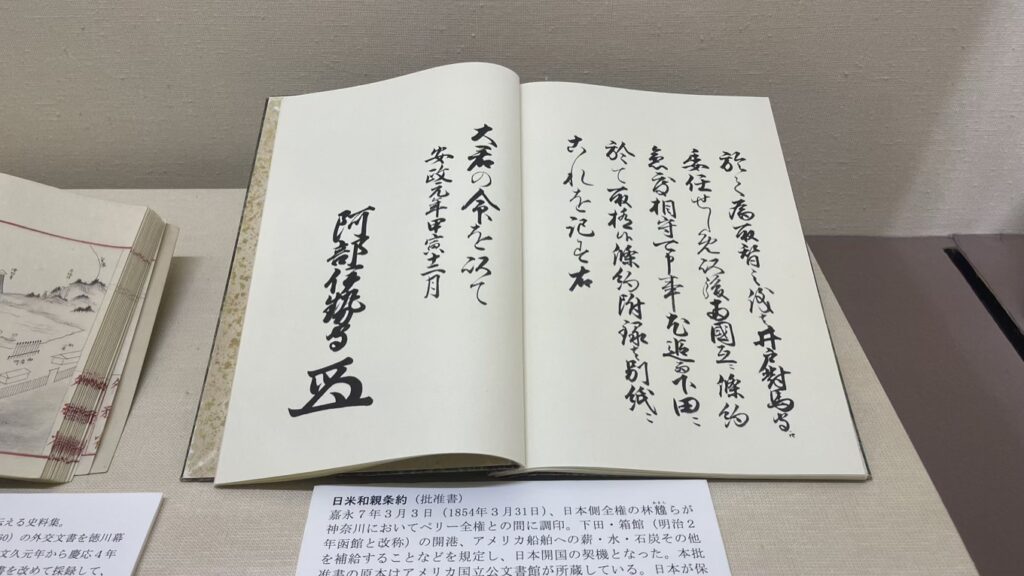 於て為取替之儀は井戸對馬守に
委任せしめ以後両國立之條約
急度相守可申事尤追而下田に
於て取極候條約附録之別紙に
これを記す右
大君の命を以て
安政元年甲寅十二月
阿部伊勢守
日米和親条約(批准書)
嘉永7年3月3日(1854年3月31日)、日本側全権の林韑らが
神奈川においてペリー全権との間に調印。下田・箱館(明治2
年函館と改称)の開港、アメリカ船舶への薪・水・石炭その他
を補給することなどを規定し、日本開国の契機となった。本批
准書の原本はアメリカ国立公文書館が所蔵している。日本が保
伝える史料集。
60)の外交文書を徳川幕
文久元年から慶応4年
書を改めて採録して、